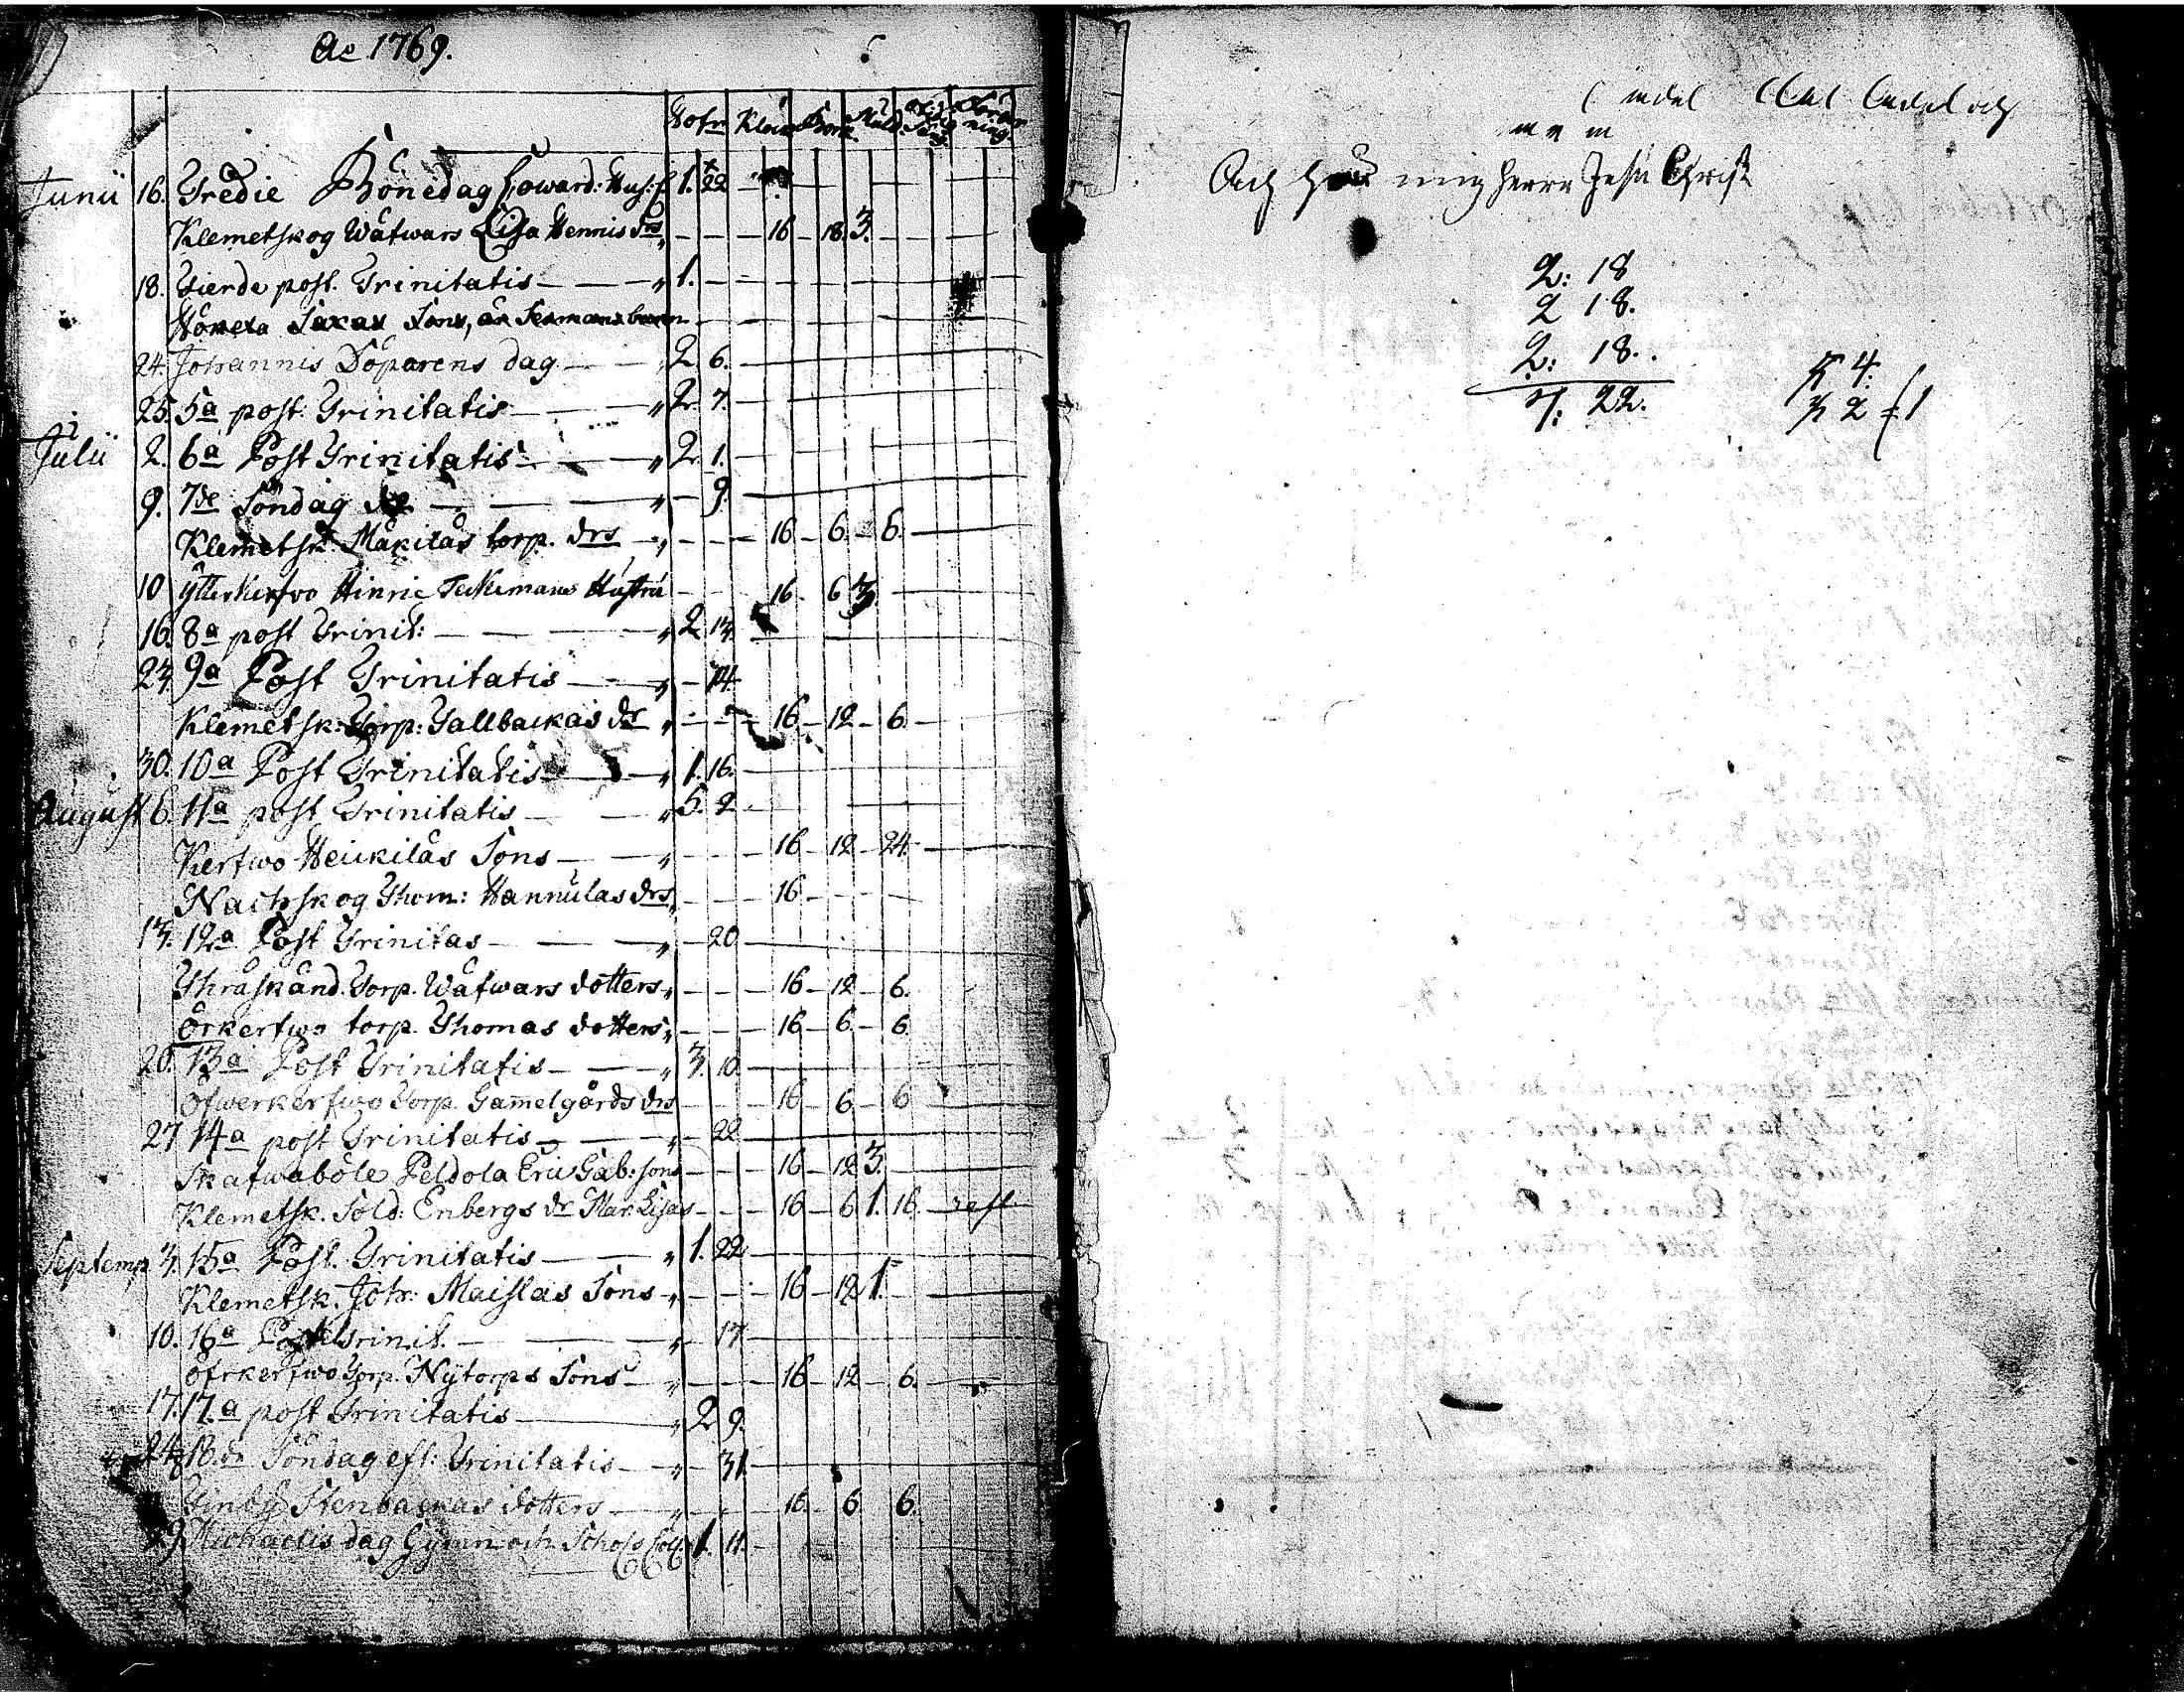 Ao 1769.
Hofn Klåck Bår Mull
Junii 16. Tredie Bönedag 1. 22
Klemetskog Wåfwars Lisa Hennis drs 16 18 3.
18. Fierde post. Trinitatis 1.
24. Johannis Döparens dag 2 6.
25. 5a post Trinitatis 2 7.
Julii 2. 6a Post Trinitatis 2 1.
9. 7de Söndag 9.
Klemetsk. Mäkiläs torp. drs 16 6 6.
10 Ytterkerfwo Hinric Teckimans Hustru 16 6 3
16. 8a post Trinit: 2 14.
24. 9a Post Trinitatis 14.
Klemetsk: Torp: Tallbackas dr 16 12 6.
30. 10a Post Trinitatis 1. 16.
August 6. 11a post Trinitatis 5. 2
Kerfwo Heickiläs Sons 16 12 24.
Nachskog Thom: Hannulas drs 16
13. 12a Post Trinitas 20
Thräskänd. Torp. Wåfwars dotters 16 12 6.
Örkerfwo torp. Thomas dotters 16 6 6
20. 13a Post Trinitatis 3. 10.
Ofwerkerfwo Torp. Gammelgårds drs 16 6 6
27 14a post Trinitatis 22
Skafwaböle Peldola Eric Gab: sons 16 12 3.
Klemetsk. Sold: Enbergs dr Mar. Lisas 16 6 1. 16. rest.
Septemp 3. 15a Post. Trinitatis 1. 22
Klemetsk. Joh: Maislas Sons 16 12 1.
10. 16a Post Trinit. 17
Öfrkerfwo Torp. Nytorps Sons 16 12 6.
17. 17.a post Trinitatis 2 9.
24. 18.de Söndag eft: Trinitatis 31.
Finby Stenbackas dotters 16. 6. 6.
29 Michaelis dag Gymn och Schols Coll. 1. 11.
Ach mig Herre Jesu Christ
2: 18
2 18.
2: 18.
7: 22.
4.
2 1